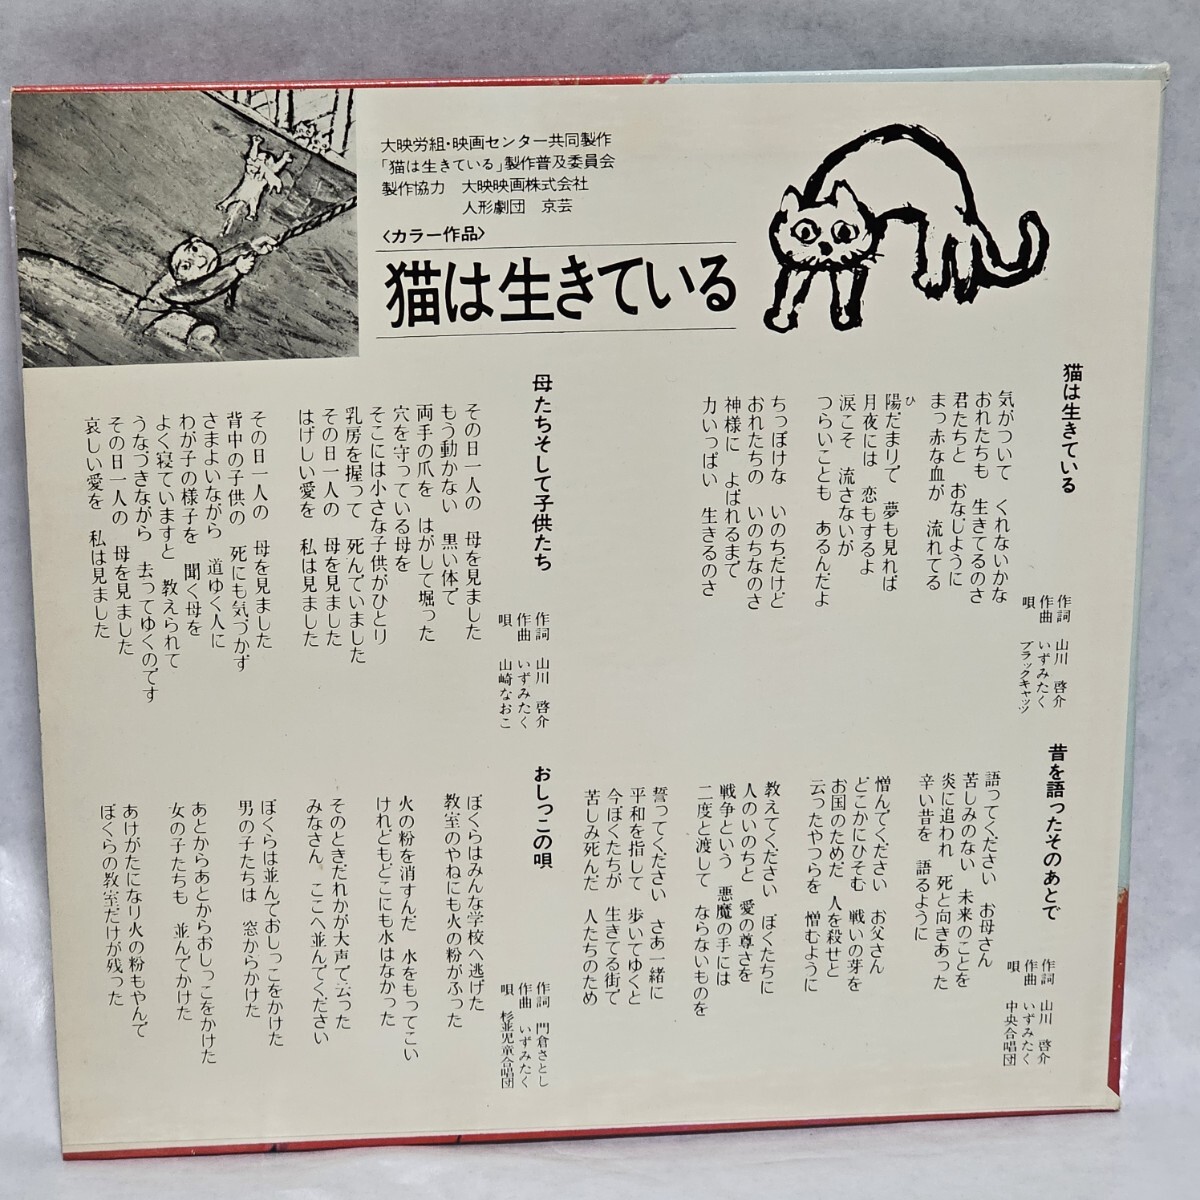 大映労組・映画センター共同製作
「猫は生きている」製作普及委員会
製作協力　大映映画株式会社
人形劇団　京芸
〈カラー作品〉
猫は生きている
猫は生きている
作詞　山川　啓介
作曲　いずみたく
唄　ブラックキャッツ
気がついて　くれないかな
おれたちも　生きてるのさ
君たちと　おなじように
まっ赤な血が　流れてる
陽だまりで　夢も見れば
ひ
月夜には　恋もするよ
涙こそ　流さないが
つらいことも　あるんだよ
ちっぽけな　いのちだけど
おれたちの　いのちなのさ
神様に　よばれるまで
力いっぱい　生きるのさ
母たちそして子供たち
作詞　山川　啓介
作曲　いずみたく
唄　山崎なおこ
その日一人の　母を見ました
もう動かない　黒い体で
両手の爪を　はがして堀った
穴を守っている母を
そこには小さな子供がひとり
乳房を握って　死んでいました
その日一人の　母を見ました
はげしい愛を　私は見ました
その日一人の　母を見ました
背中の子供の　死にも気づかず
さまよいながら　道ゆく人に
わが子の様子を　聞く母を
よく寝ていますと　教えられて
うなづきながら　去ってゆくのです
その日一人の　母を見ました
哀しい愛を　私は見ました
昔を語ったそのあとで
作詞　山川　啓介
作曲　いずみたく
唄　中央合唱団
語ってください　お母さん
苦しみのない　未来のことを
炎に追われ　死と向きあった
辛い昔を　語るように
憎んでください　お父さん
どこかにひそむ　戦いの芽を
お国のためだ　人を殺せと
云ったやつらを　憎むように
教えてください　ぼくたちに
人のいのちと　愛の尊さを
戦争という　悪魔の手には
二度と渡して　ならないものを
誓ってください　さあ一緒に
平和を指して　歩いてゆくと
今ぼくたちが　生きてる街で
苦しみ死んだ　人たちのため
おしっこの唄
作詞　門倉さとし
作曲　いずみたく
唄　杉並児童合唱団
ぼくらはみんな学校へ逃げた
教室のやねにも火の粉がふった
火の粉を消すんだ　水をもってこい
けれどもどこにも水はなかった
そのときだれかが大声で云った
みなさん　ここへ並んでください
ぼくらは並んでおしっこをかけた
男の子たちは　窓からかけた
あとからあとからおしっこをかけた
女の子たちも　並んでかけた
あけがたになり火の粉もやんで
ぼくらの教室だけが残った